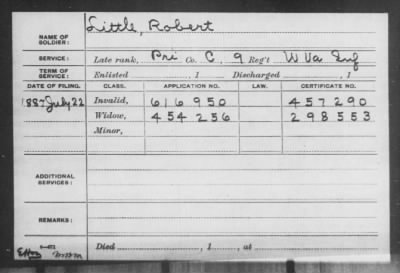 NAME OF SOLDIER: Little, Robert
SERVICE: Late rank, Pri Co. C, 9 Reg't W Va Inf
TERM OF SERVICE: Enlisted , 1 Discharged , 1
DATE OF FILING. CLASS. APPLICATION NO. LAW. CERTIFICATE NO.
1887 July 22 Invalid, 616950 457290
Widow, 454256 298553
Minor,
ADDITIONAL SERVICES:
REMARKS:
Died , 1 , at